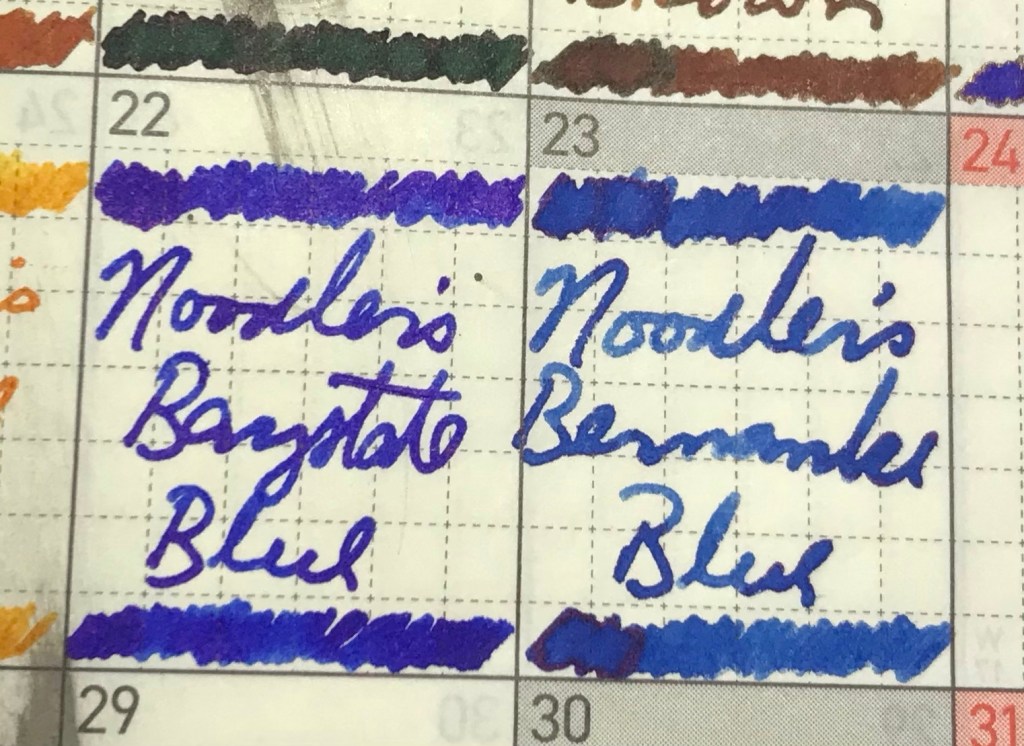 Brown
22
23
24
Noodler's
Baystate
Blue
Noodler's
Bernanke
Blue
29
30
31